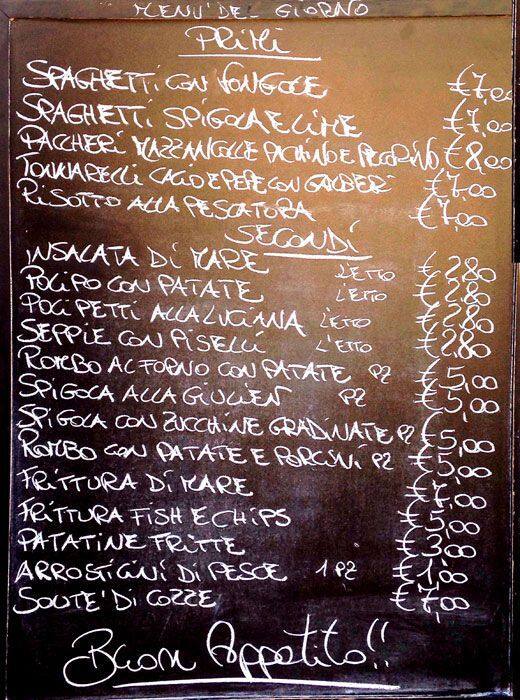 MENU' DEL GIORNO
PRIMI
SPAGHETTI CON VONGOLE €7,00
SPAGHETTI SPIGOLA E LIME €7,00
PACCHERI MAZZANCOLLE PACHINO E PECORINO €8,00
TONNARELLI CACIO E PEPE CON GAMBERI €7,00
RISOTTO ALLA PESCATORA €7,00
SECONDI
INSALATA DI MARE L'ETTO €2,80
POLIPO CON PATATE L'ETTO €2,80
POLIPETTI ALLA LUCIANA L'ETTO €2,80
SEPPIE CON PISELLI L'ETTO €2,80
ROMBO AL FORNO CON PATATE PZ €5,00
SPIGOLA ALLA GIULIEN PZ €5,00
SPIGOLA CON ZUCCHINE GRADINATE PZ €5,00
ROMBO CON PATATE E PORCINI PZ €5,00
FRITTURA DI MARE €7,00
FRITTURA FISH E CHIPS €5,00
PATATINE FRITTE €3,00
ARROSTICINI DI PESCE 1 PZ €1,00
SOUTE' DI COZZE €7,00
Buon Appetito!!